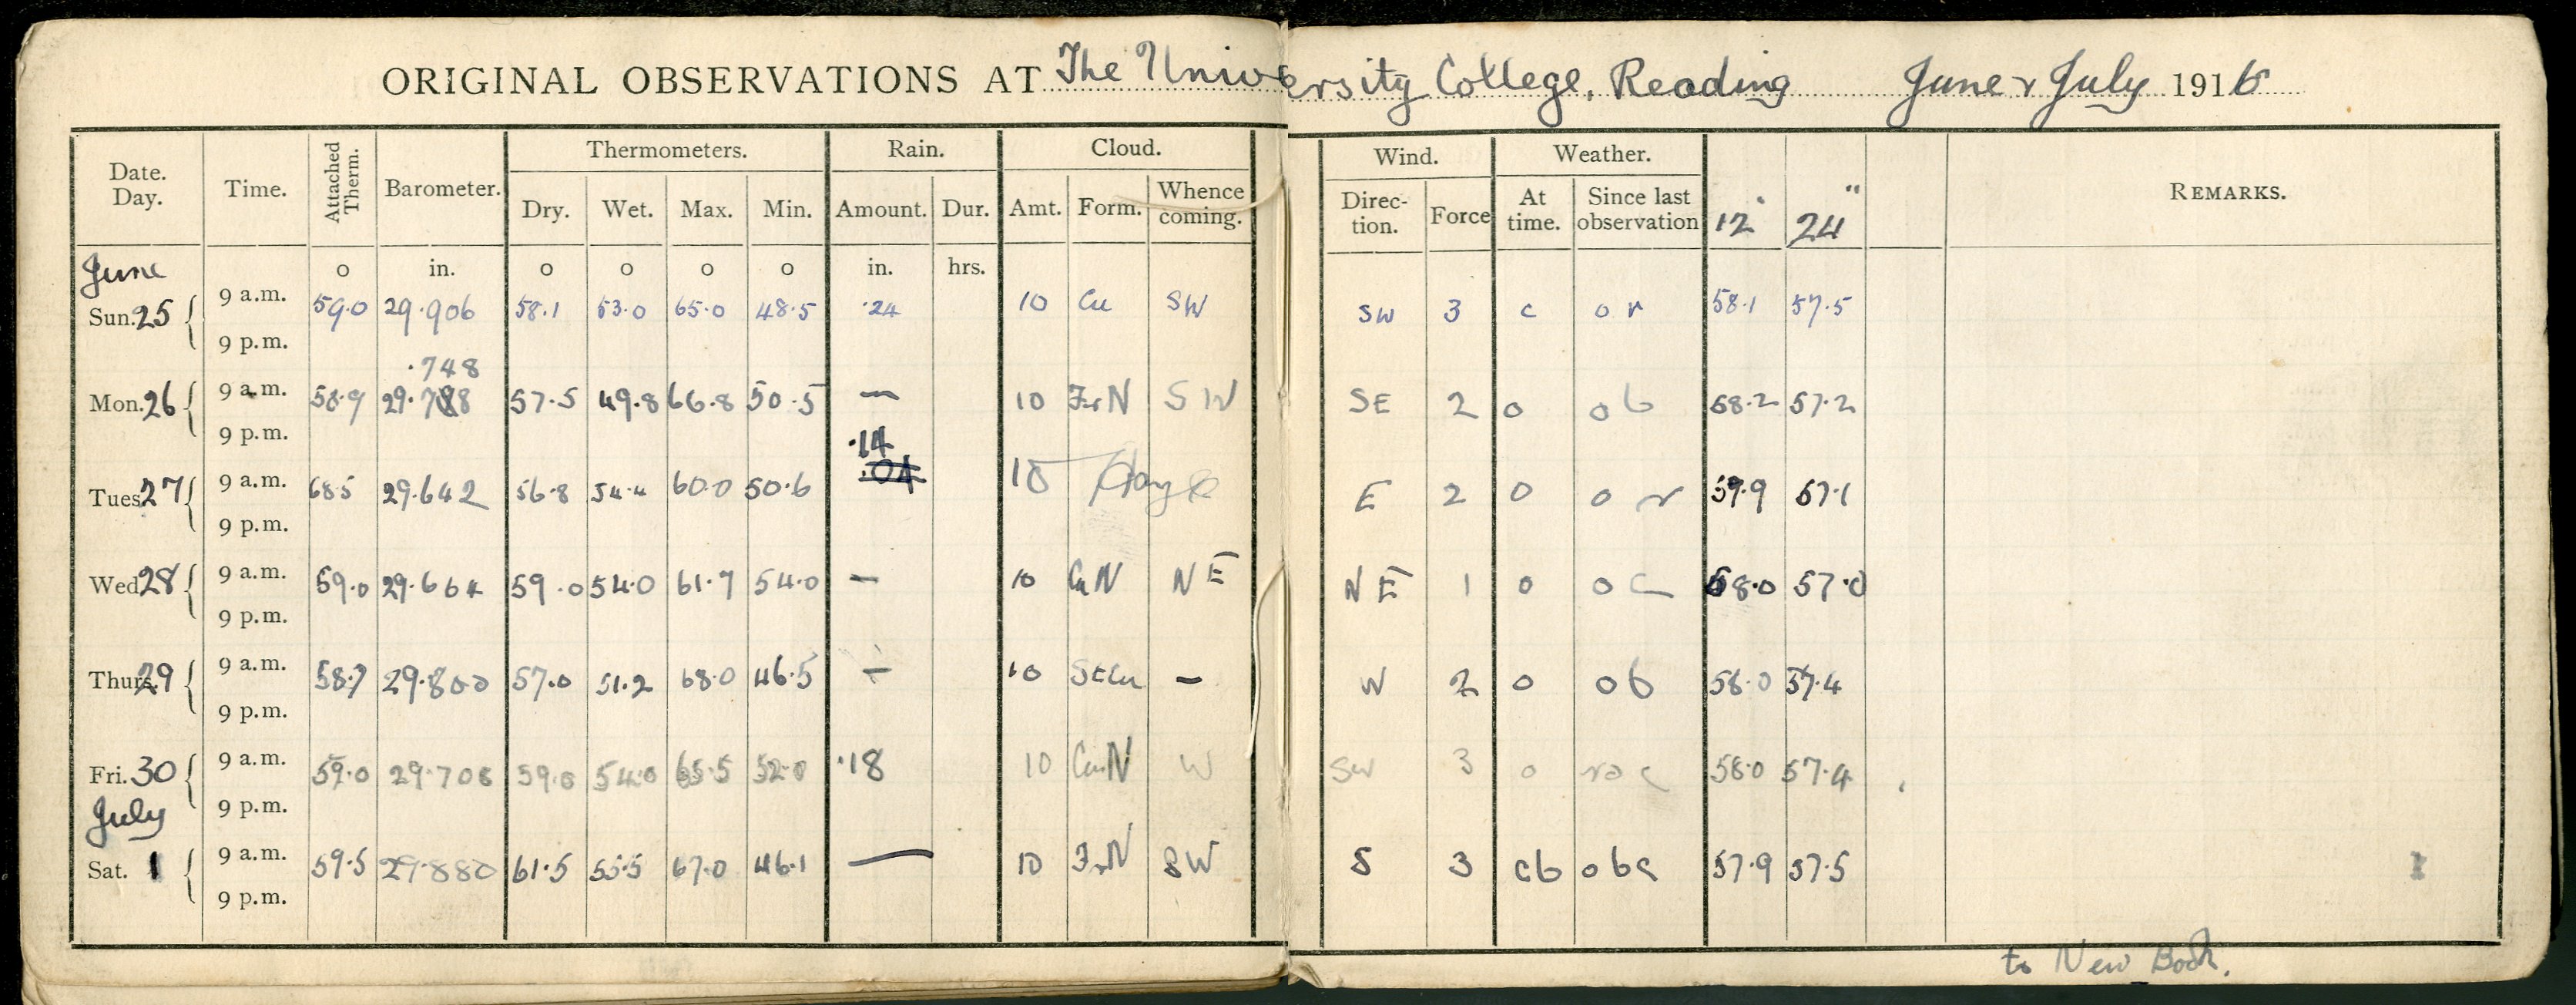 ORIGINAL OBSERVATIONS AT The University College, Reading June & July 1916
Date. Day. Time. Attached Therm. Barometer. Thermometers. Rain. Cloud. Wind. Weather. 12" 24" REMARKS.
Dry. Wet. Max. Min. Amount. Dur. Amt. Form. Whence coming. Direc-tion. Force At time. Since last observation
June o in. o o o o in. hrs.
Sun. 25 9 a.m. 59.0 29.906 58.1 53.0 65.0 48.5 .24 10 Cu SW SW 3 c o r 58.1 57.5
9 p.m.
.748
Mon. 26 9 a.m. 58.9 29.788 57.5 49.8 66.8 50.5 — 10 FrN SW SE 2 o o b 58.2 57.2
9 p.m.
.14
.04
Tues. 27 9 a.m. 68.5 29.642 56.8 54.4 60.0 50.6 10 E 2 o o r 59.9 57.1
9 p.m.
Wed. 28 9 a.m. 59.0 29.664 59.0 54.0 61.7 54.0 — 10 CuN NE NE 1 o o c 58.0 57.0
9 p.m.
Thurs. 29 9 a.m. 58.7 29.800 57.0 51.2 68.0 46.5 — 10 StCu — W 2 o o b 58.0 57.4
9 p.m.
Fri. 30 9 a.m. 59.0 29.708 59.0 54.0 65.5 52.0 .18 10 CuN W SW 3 o r o c 58.0 57.4
9 p.m.
July
Sat. 1 9 a.m. 59.5 29.880 61.5 55.5 67.0 46.1 — 10 FrN SW S 3 cb o b c 57.9 57.5
9 p.m.
to New Book.